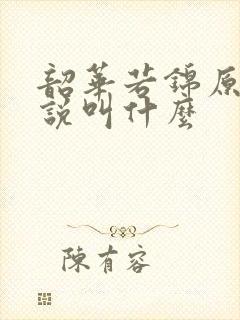 韶華若錦原
說叫什麼
陳有容